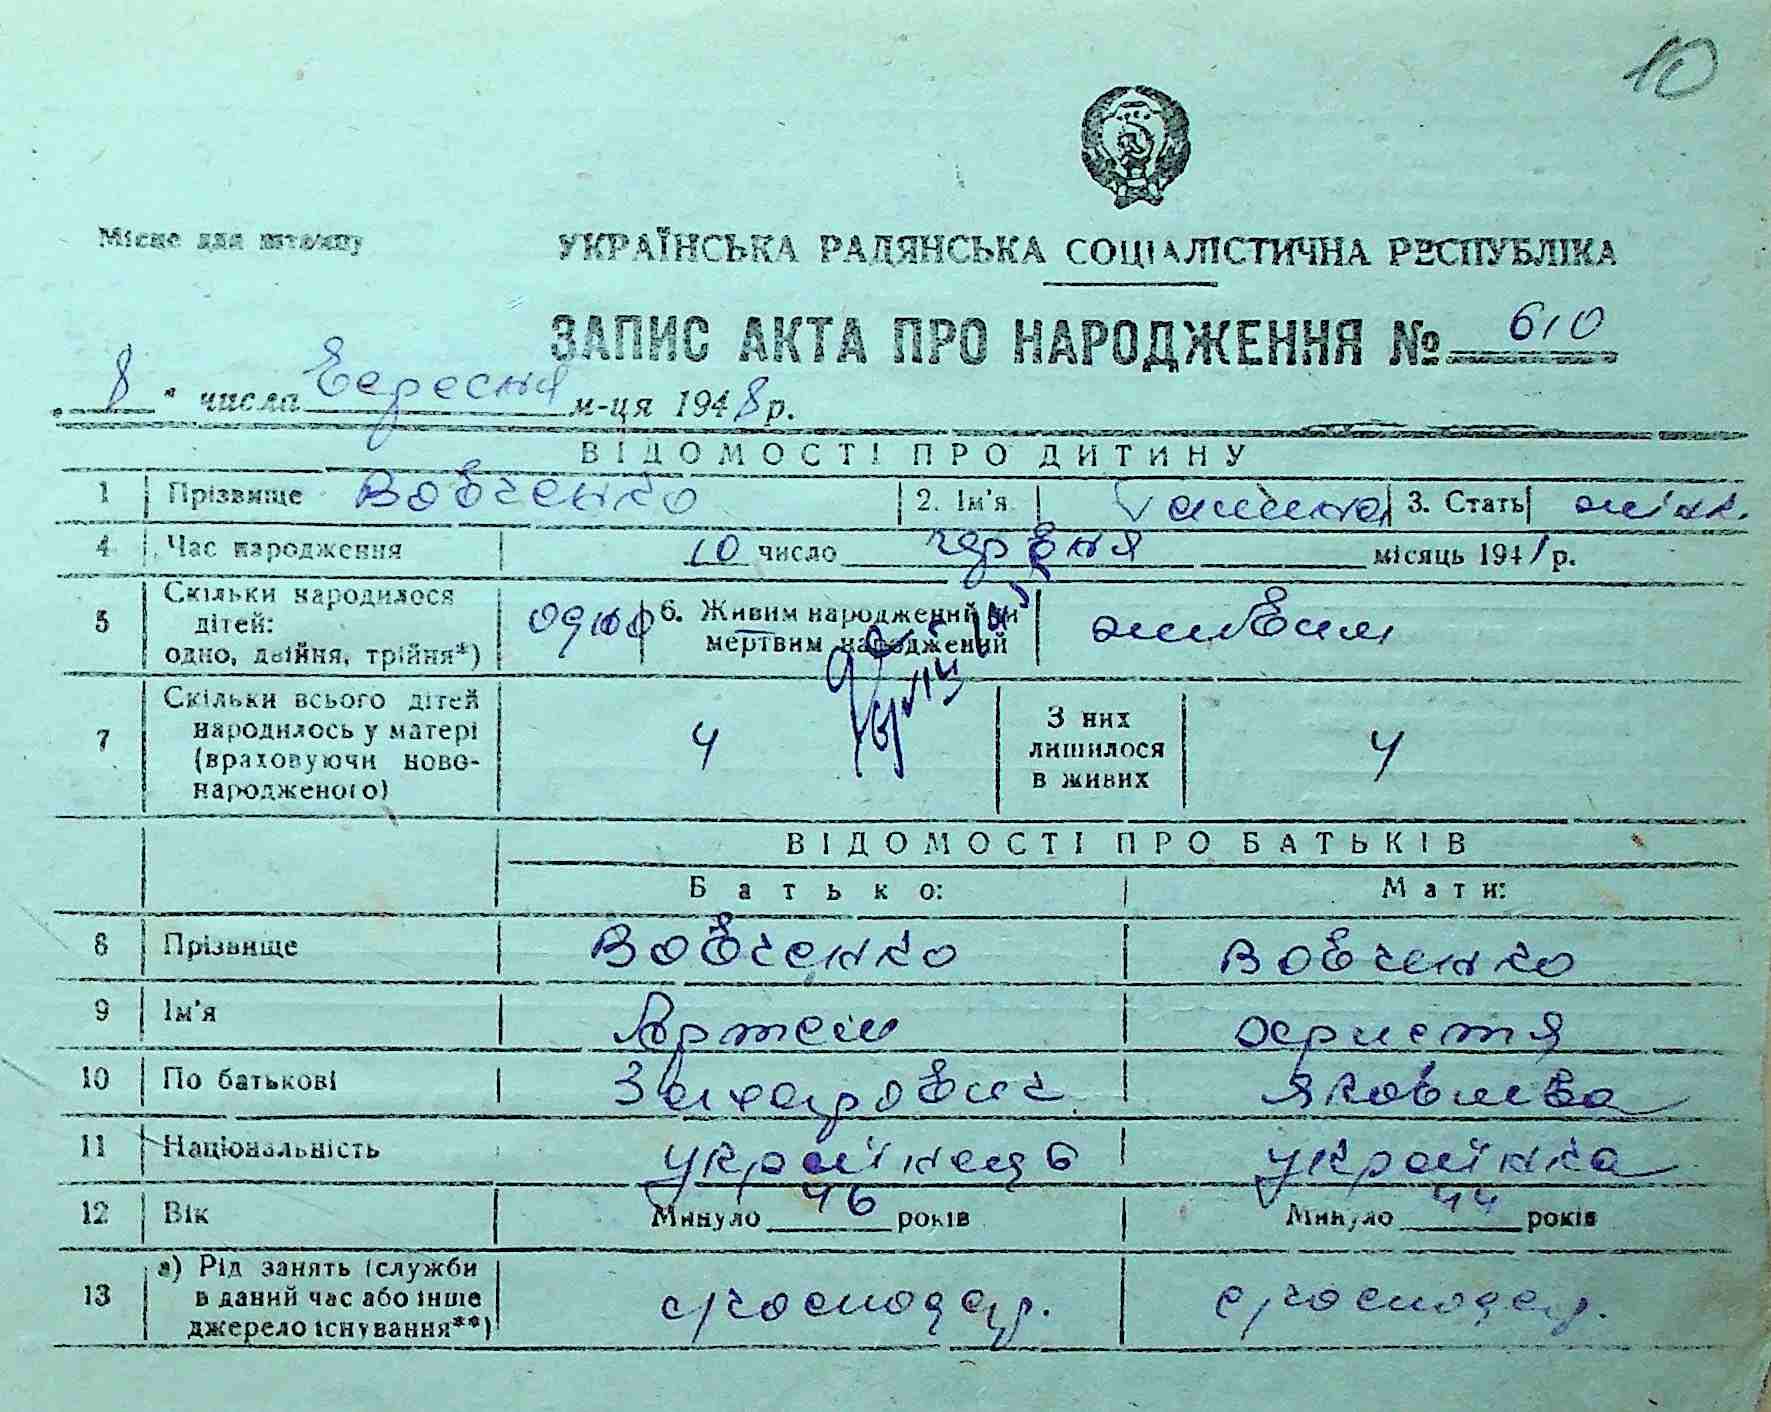 10
Місце для штампу
УКРАЇНСЬКА РАДЯНСЬКА СОЦІАЛІСТИЧНА РЕСПУБЛІКА
ЗАПИС АКТА ПРО НАРОДЖЕННЯ № 610
„ 8 " числа Вересня м-ця 1948 р.
ВІДОМОСТІ ПРО ДИТИНУ
1 Прізвище Вовченко 2. Ім'я Галина 3. Стать жінк.
4 Час народження 10 число червня місяць 1941 р.
5 Скільки народилося дітей: одно, двійня, трійня*) одно 6. Живим народжений чи мертвим народжений живим
7 Скільки всього дітей народилось у матері (враховуючи новонародженого) 4 З них лишилося в живих 4
ВІДОМОСТІ ПРО БАТЬКІВ
Батько: Мати:
8 Прізвище Вовченко Вовченко
9 Ім'я Артем Христя
10 По батькові Захарович Яковлівна
11 Національність українець українка
12 Вік Минуло 46 років Минуло 44 років
13 а) Рід занять (служби в даний час або інше джерело існування**) с/господар. с/господар.